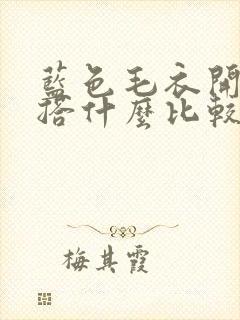 藍色毛衣開
搭什麼比較
梅其霞